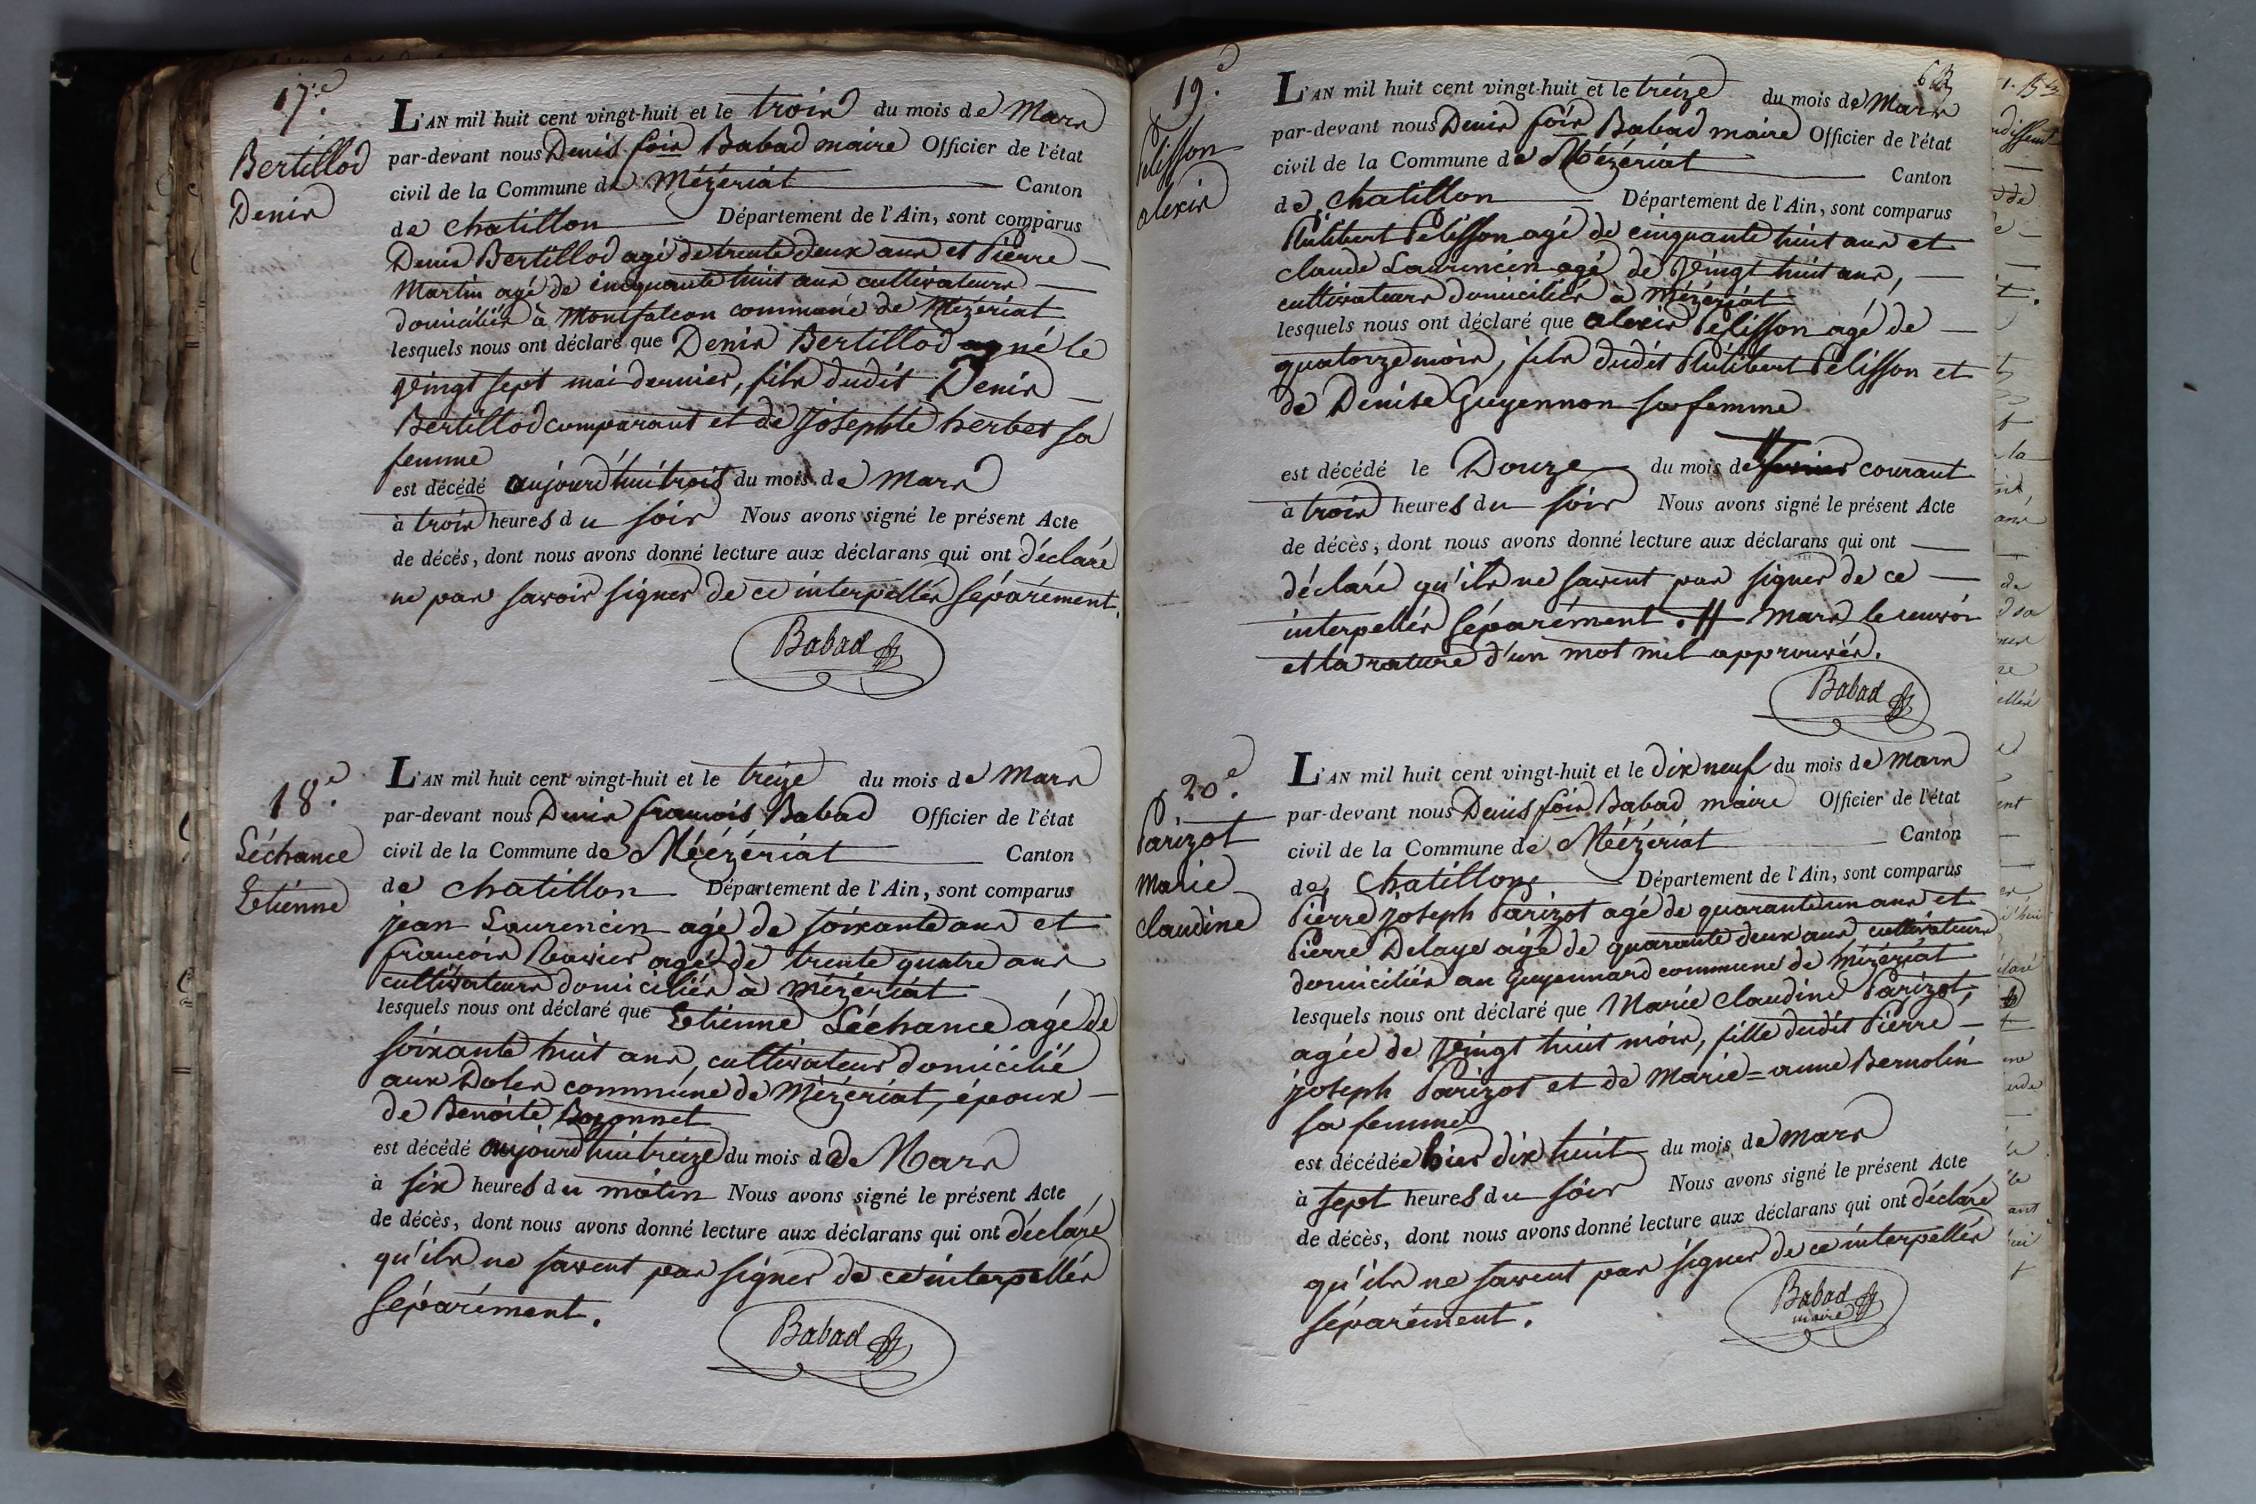 17.e
Bertillod
Denis
L'AN mil huit cent vingt-huit et le trois du mois de Mars
par-devant nous Denis fois Babad maire Officier de l'état
civil de la Commune de Mézériat Canton
de chatillon Département de l'Ain, sont comparus
Denis Bertillod agé de trente deux ans et Pierre
Martin agé de cinquante huit ans cultivateurs
domiciliés à Montfalcon commune de Mézériat
lesquels nous ont déclaré que Denis Bertillod né le
vingt sept mai dernier, fils dudit Denis
Bertillod comparant et de josephte herbet sa
femme
est décédé aujourd'hui trois du mois de Mars
à trois heures du soir Nous avons signé le présent Acte
de décès, dont nous avons donné lecture aux déclarans qui ont déclaré
ne pas savoir signer de ce interpellés séparément.
Babad
18.e
Léchance
Etienne
L'AN mil huit cent vingt-huit et le treize du mois de Mars
par-devant nous Denis francois Babad Officier de l'état
civil de la Commune de Méézériat Canton
de chatillon Département de l'Ain, sont comparus
jean Laurencin agé de soixante ans et
francois agé de trente quatre ans
cultivateurs domiciliés à mézériat
lesquels nous ont déclaré que Etienne Léchance agé de
soixante huit ans, cultivateur domicilié
aux Doles commune de Mézériat, époux
de Benoite Bozonnet
est décédé aujourd'hui treize du mois d de Mars
à six heures du matin Nous avons signé le présent Acte
de décès, dont nous avons donné lecture aux déclarans qui ont déclaré
qu'ils ne savent pas signer de ce interpellés
séparément.
Babad
19.e
Pelisson
alexis
L'AN mil huit cent vingt-huit et le treize du mois de Mars
par-devant nous Denis fois Babad maire Officier de l'état
civil de la Commune de Mézériat Canton
de chatillon Département de l'Ain, sont comparus
Philibert Pelisson agé de cinquante huit ans et
claude Laurencin agé de vingt huit ans,
cultivateurs domiciliés à Mézériat
lesquels nous ont déclaré que alexis Pelisson agé de
quatorze mois, fils dudit Philibert Pelisson et
de Denise Guyennon sa femme
est décédé le Douze du mois de courant
à trois heures du soir Nous avons signé le présent Acte
de décès, dont nous avons donné lecture aux déclarans qui ont
déclaré qu'ils ne savent pas signer de ce
interpellés séparément. # mars le renvoi
et la rature d'un mot nul approuvés.
Babad
20.e
Parizot
marie
claudine
L'AN mil huit cent vingt-huit et le dix neuf du mois de mars
par-devant nous Denis fois Babad maire Officier de l'état
civil de la Commune de Méézériat Canton
de Chatillon Département de l'Ain, sont comparus
Pierre joseph Parizot agé de quarante un ans et
Pierre Delaye agé de quarante deux ans cultivateurs
domiciliés au Guyennard commune de mézériat
lesquels nous ont déclaré que Marie claudine Parizot,
agée de vingt huit mois, fille dudit Pierre
joseph Parizot et de Marie=anne Bernolin
sa femme
est décédée hier dix huit du mois de mars
à sept heures du soir Nous avons signé le présent Acte
de décès, dont nous avons donné lecture aux déclarans qui ont déclaré
qu'ils ne savent pas signer de ce interpellés
séparément.
Babad
maire